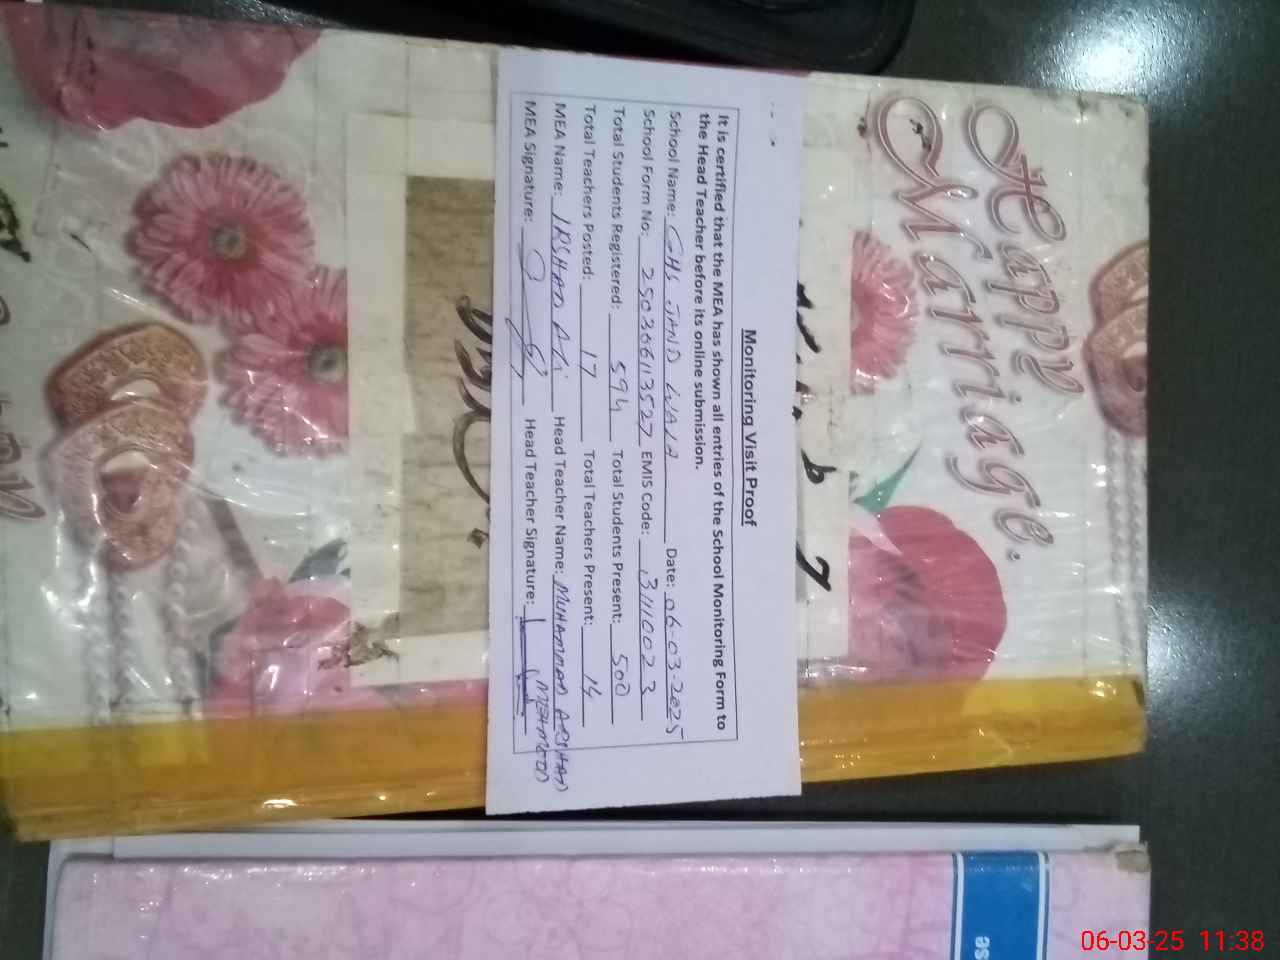 Monitoring Visit Proof
It is certified that the MEA has shown all entries of the School Monitoring Form to
the Head Teacher before its online submission.
School Name: GHS JAND WALA Date: 06-03-2025
School Form No: 250366113527 EMIS Code: 3111002 3
Total Students Registered: 594 Total Students Present: 500
Total Teachers Posted: 17 Total Teachers Present: 14
MEA Name: IRSHAD ALi Head Teacher Name: MUHAMMAD ARSHAD
MEHMOOD
MEA Signature: Head Teacher Signature:
Happy
Marriage.
se
06-03-25 11:38